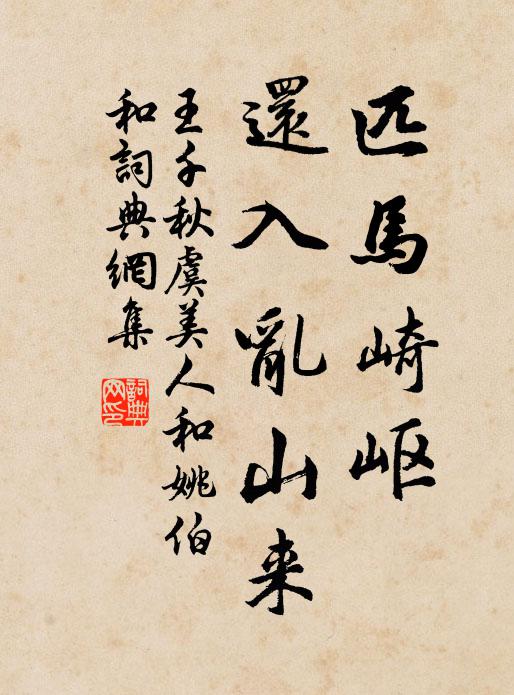 匹馬崎岖
還入亂山来
王千秋虞美人和姚伯
和詞典網集
詞典网印